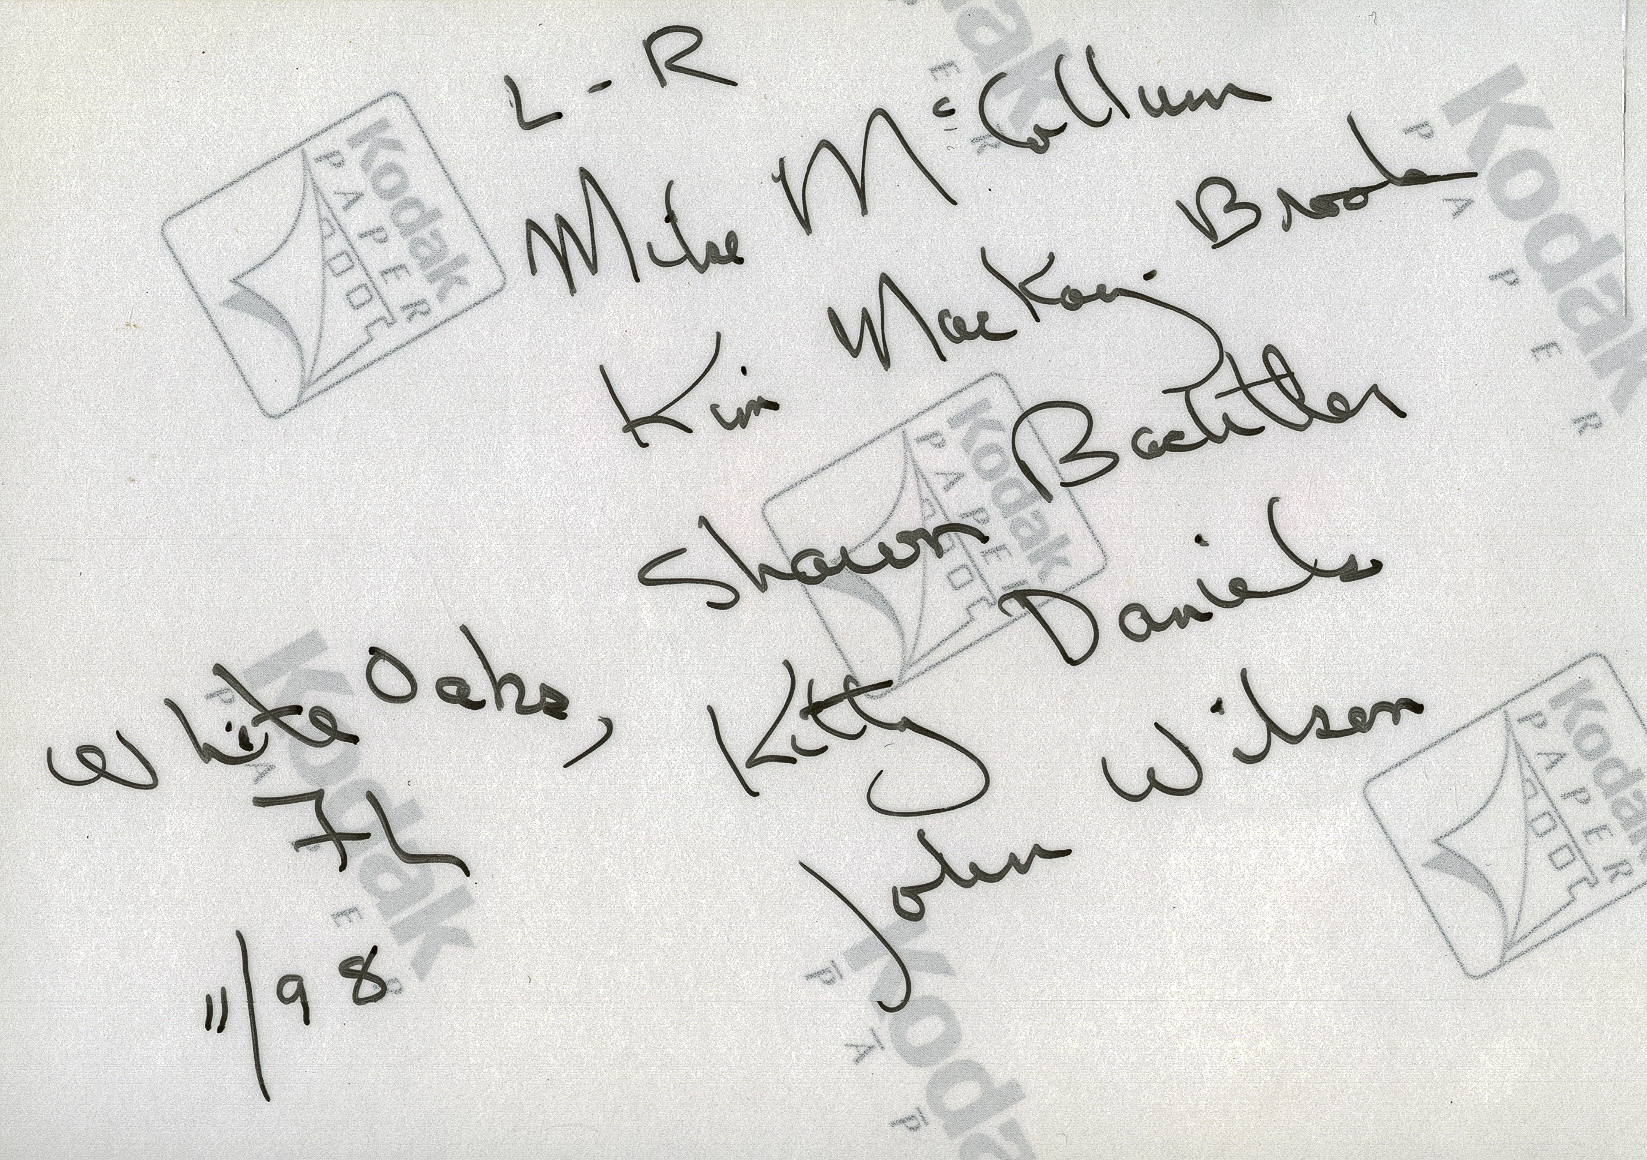 L - R
Mike McCollum
Kim MacKay Brook
Shawn
Kitty Daniels
John Wilson
White Oaks,
FL
11/98
Kodak
PAPER
Kodak
PAPER
Kodak
PAPER
Kodak
PAPER
Kodak
PAPER
Kodak
PAPER
Kodak
PAP